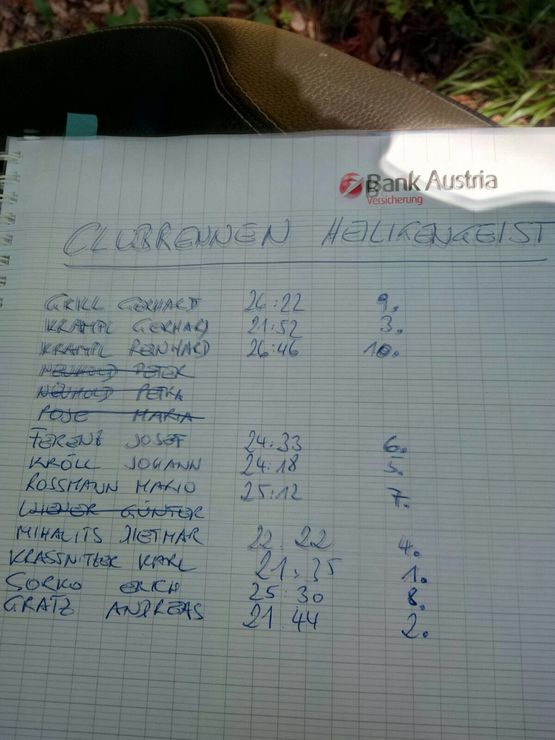 Bank Austria
Versicherung
CLUBRENNEN HEILIGENGEIST
GRILL GERHARD 26:22 9.
KRAMPL GERHARD 21:52 3.
KRAMPL REINHARD 26:46 10.
NEUHOLD PETER
NEUHOLD PETRA
POSE MARIA
FERENZ JOSEF 24:33 6.
KRÖLL JOHANN 24:18 5.
ROSSMANN MARIO 25:12 7.
GÜNTER
MIHALITS DIETMAR 22 22 4.
KRASSNITZER KARL 21:35 1.
SORKO ERICH 25:30 8.
GRATZ ANDREAS 21:44 2.